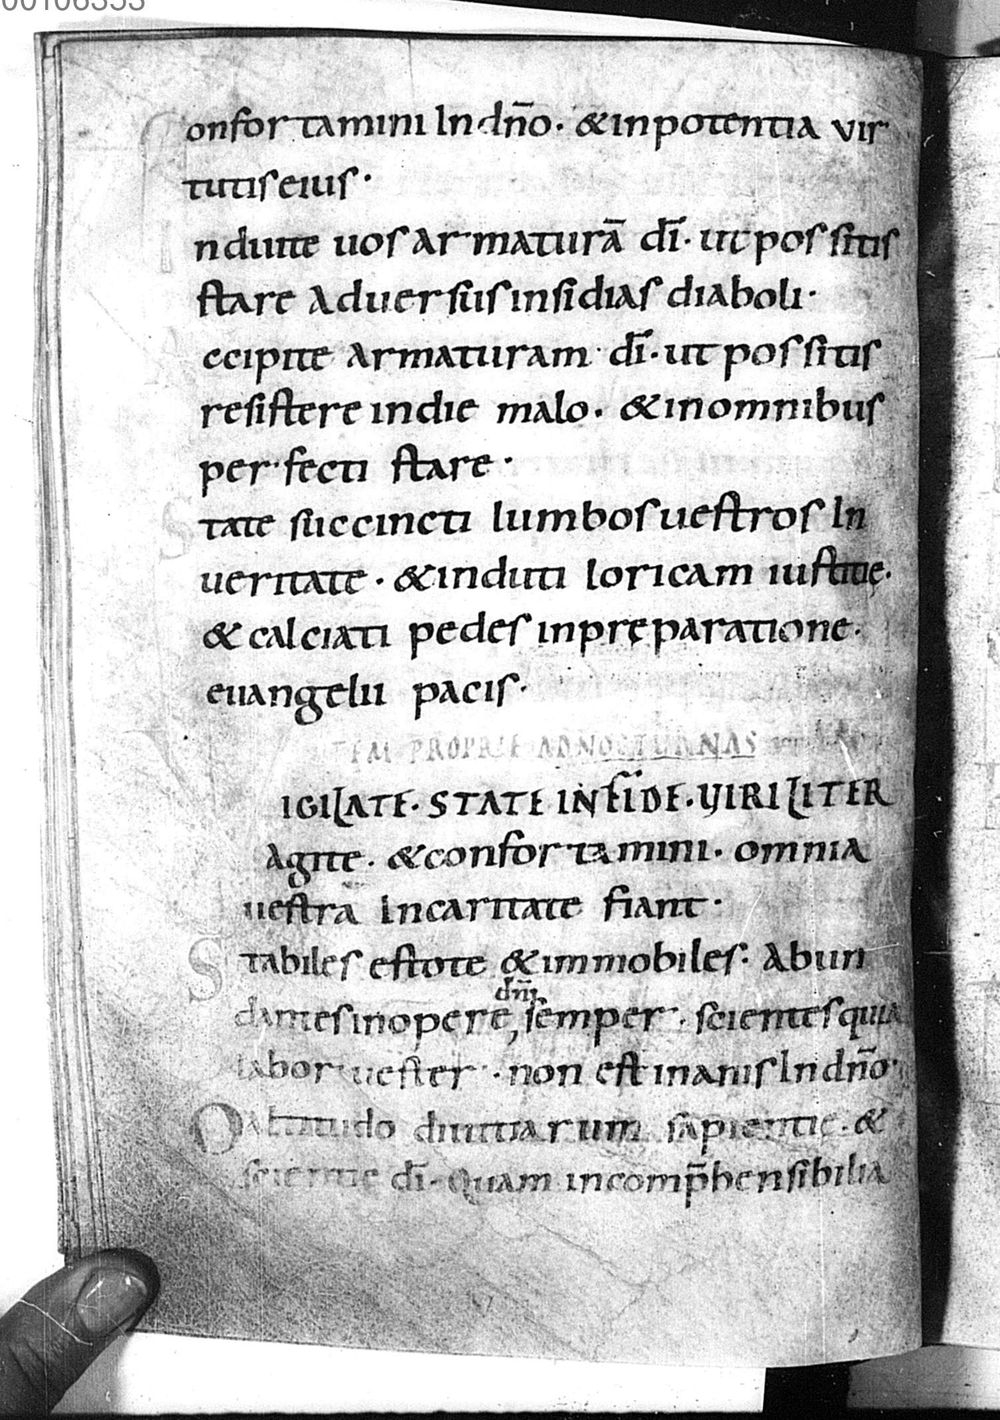 00106353
Confortamini In dn̄o· & in potentia vir
tutis eius·
Induite uos armaturā dī· ut possitis
stare aduersus insidias diaboli·
Accipite armaturam dī· ut possitis
resistere in die malo· & in omnibus
perfecti stare·
State succincti lumbos uestros In
ueritate· & induti loricam iustitię·
& calciati pedes in pręparatione·
euangelii pacis·
ITEM PROPRIE AD NOCTURNAS
VIGILATE· STATE IN FIDE· VIRILITER
Agite· & confortamini· omnia
uestra In caritate fiant·
Stabiles estote & immobiles· Abun
dn̄i
dantes in opere, semper· scientes quia
labor uester· non est inanis In dn̄o·
O altitudo diuitiarum sapientię· &
scientię dī· Quam incomp̄hensibilia